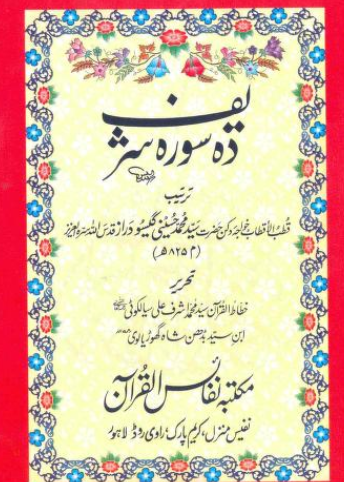 دہ سورہ شریف
ترتیب
قطب الاقطاب خواجہ دکن حضرت سید محمد حسینی گیسو دراز قدس اللہ سرہ العزیز
(م ۸۲۵ھ)
تحریر
خطاط القرآن سید محمد اشرف علی سیالکوٹی
ابن سید بدھن شاہ گھوڑیالوی
مکتبہ نفائس القرآن
نفیس منزل، کریم پارک، راوی روڈ لاہور